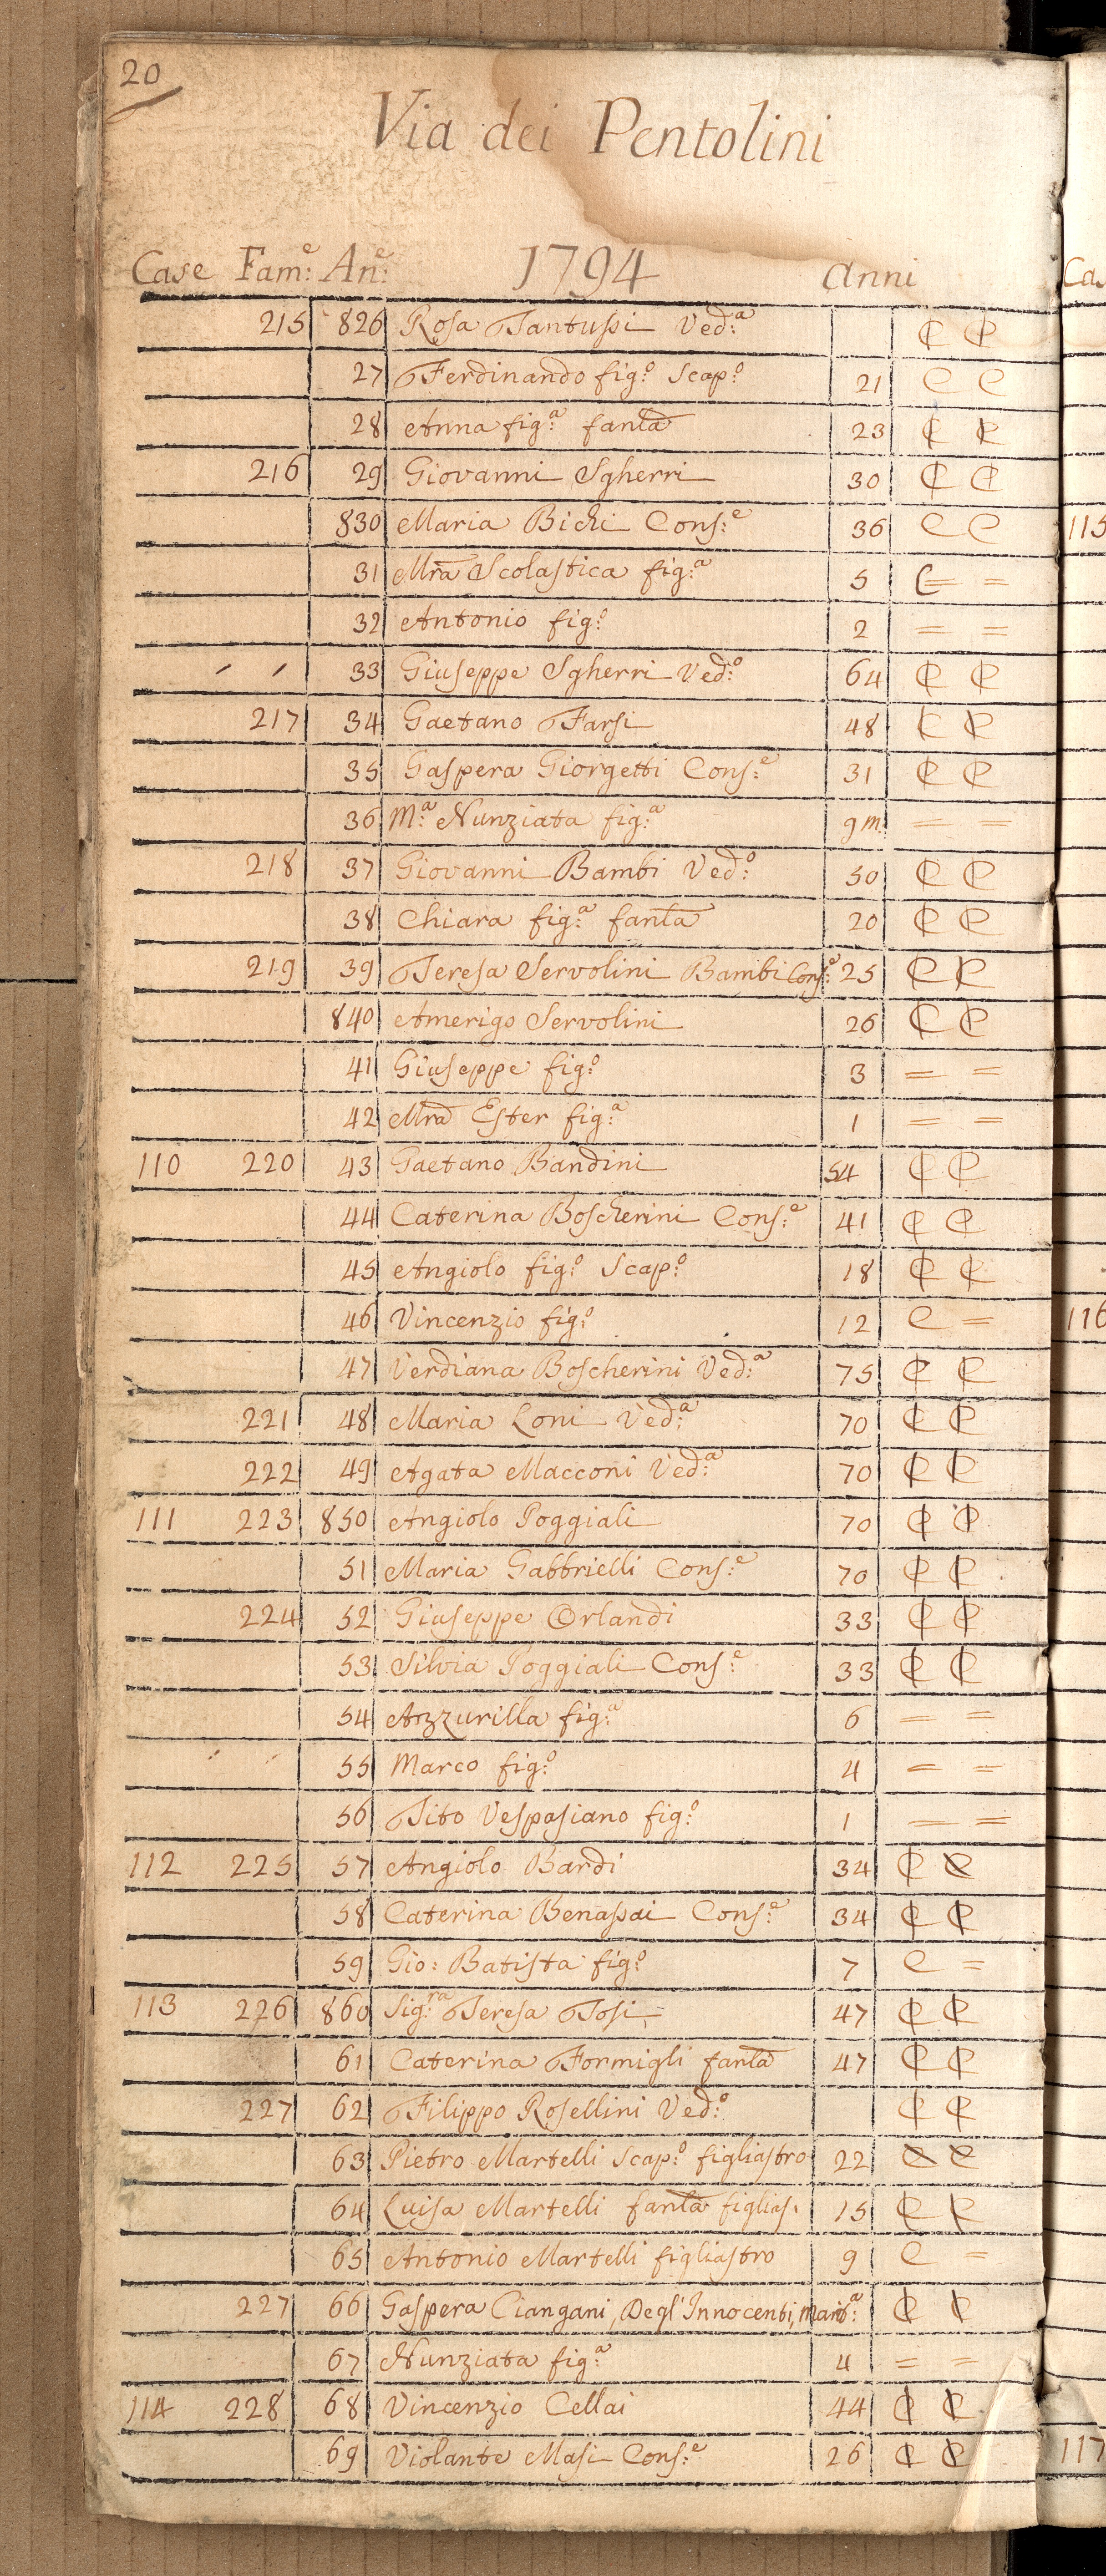 20
Via dei Pentolini
Case Fam.e: An.e: 1794 Anni
215 826 Rosa Tantussi Ved:a C C
27 Ferdinando fig:o Scap:o 21 C C
28 Anna fig:a fanla 23 C C
216 29 Giovanni Sgherri 30 C C
830 Maria Bichi Cons:e 36 C C
31 Mra Scolastica fig:a 5 C = =
32 Antonio fig:o 2 = =
33 Giuseppe Sgherri Ved:o 64 C C
217 34 Gaetano Farsi 48 C C
35 Gaspera Giorgetti Cons:e 31 C C
36 M:a Nunziata fig:a 9 m. = =
218 37 Giovanni Bambi Ved:o 50 C C
38 Chiara fig:a fanla 20 C C
219 39 Teresa Servolini Bambi Cons:e 25 C C
840 Amerigo Servolini 26 C C
41 Giuseppe fig:o 3 = =
42 Mra Ester fig:a 1 = =
110 220 43 Gaetano Bandini 54 C C
44 Caterina Boscherini Cons:e 41 C C
45 Angiolo fig:o Scap:o 18 C C
46 Vincenzio fig:o 12 C =
47 Verdiana Boscherini Ved:a 75 C C
221 48 Maria Loni Ved:a 70 C C
222 49 Agata Macconi Ved:a 70 C C
111 223 850 Angiolo Poggiali 70 C C
51 Maria Gabbrielli Cons:e 70 C C
224 52 Giuseppe Orlandi 33 C C
53 Silvia Poggiali Cons:e 33 C C
54 Azzurilla fig:a 6 = =
55 Marco fig:o 4 = =
56 Tito Vespasiano fig:o 1 = =
112 225 57 Angiolo Bardi 34 C C
58 Caterina Benassai Cons:e 34 C C
59 Gio: Batista fig:o 7 C =
113 226 860 Sig:ra Teresa Tosi 47 C C
61 Caterina Formigli fanla 47 C C
227 62 Filippo Rosellini Ved:o C C
63 Pietro Martelli Scap:o figliastro 22 C C
64 Luisa Martelli fanla figlias. 15 C C
65 Antonio Martelli figliastro 9 C =
227 66 Gaspera Ciangani, Degl'Innocenti, Marit:a C C
67 Nunziata fig:a 4 = =
114 228 68 Vincenzio Cellai 44 C C
69 Violante Masi Cons:e 26 C C
Cas
115
116
117